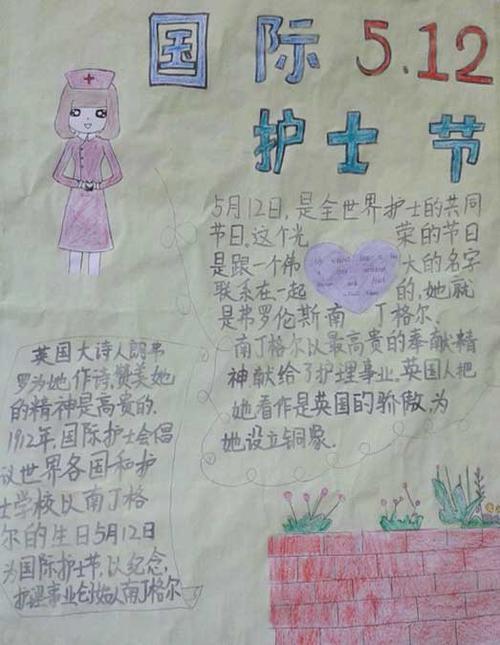 国际 5.12
护士节
5月12日，是全世界护士的共同
节日，这个光荣的节日
是跟一个伟大的名字
联系在一起的，她就
是弗罗伦斯南丁格尔，
南丁格尔以最高贵的奉献精
神献给了护理事业，英国人把
她看作是英国的骄傲，为
她设立铜象。
英国大诗人朗弗
罗为她作诗，赞美她
的精神是高贵的，
1912年，国际护士会倡
议世界各国和护
士学校以南丁格
尔的生日5月12日
为国际护士节，以纪念，
护理事业创始人南丁格尔